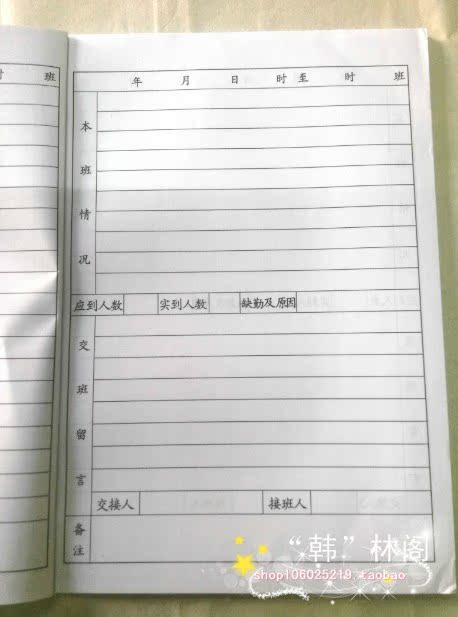 时 班
年 月 日 时至 时 班
本班情况
应到人数 实到人数 缺勤及原因
交班留言
交接人 接班人
备注
“韩”林阁
shop106025219.taobao